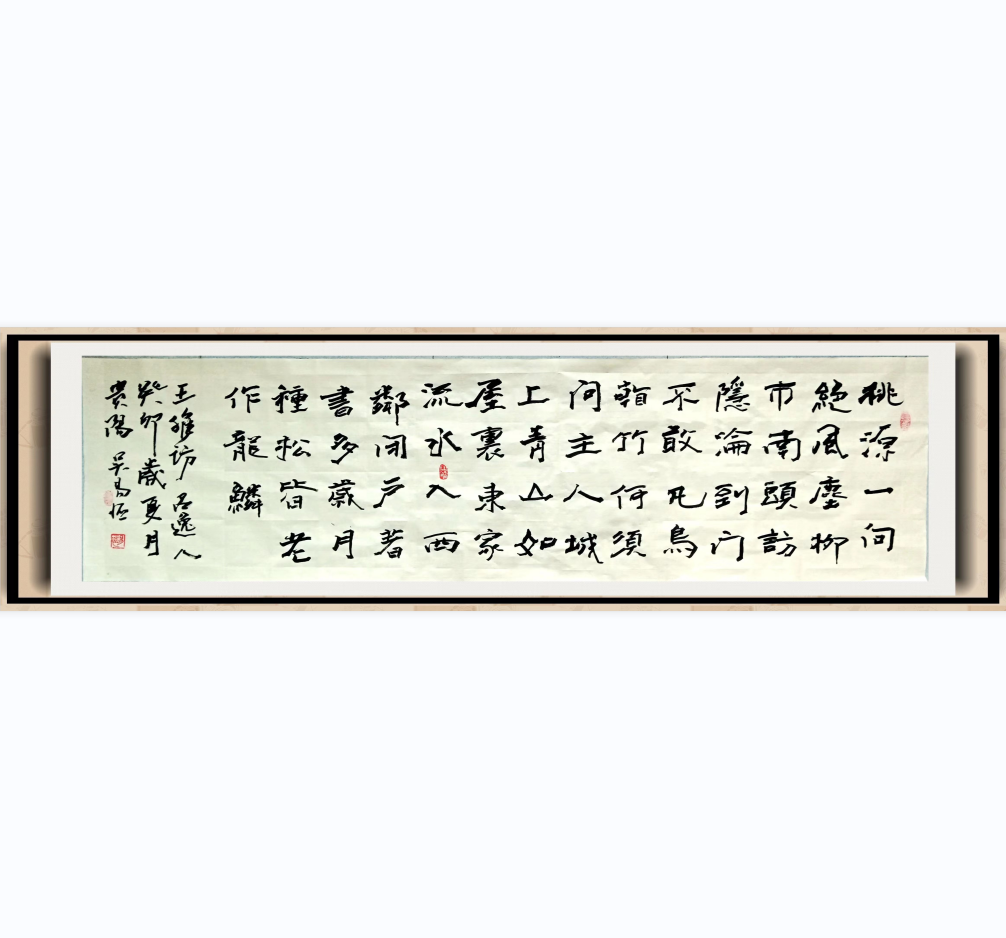 桃源一向
絕風塵柳
市南頭訪
隱淪到门
不敢凡鳥
看竹何須
问主人城
上青山如
屋裏東家
流水入西
鄰闭户著
書多歲月
種松皆老
作龍鱗
王維訪呂逸人
癸卯歲夏月
貴陽 吴